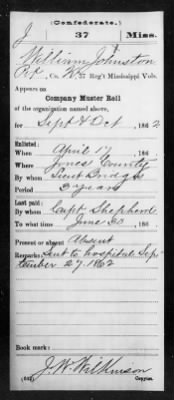 (Confederate.)
J 37 Miss.
William Johnston
Pvt, Co. , 37 Reg't Mississippi Vols.
Appears on
Company Muster Roll
of the organization named above,
for Sept & Oct, 1862
Enlisted:
When April 17, 186
Where Jones County
By whom Lieut
Period 3 years
Last paid:
By whom Capt Shepherd
To what time June 30, 186
Present or absent Absent
Remarks: Sent to hospital Sep
tember 27 1862
Book mark:
J. W. Wilkinson
(642) Copyist.